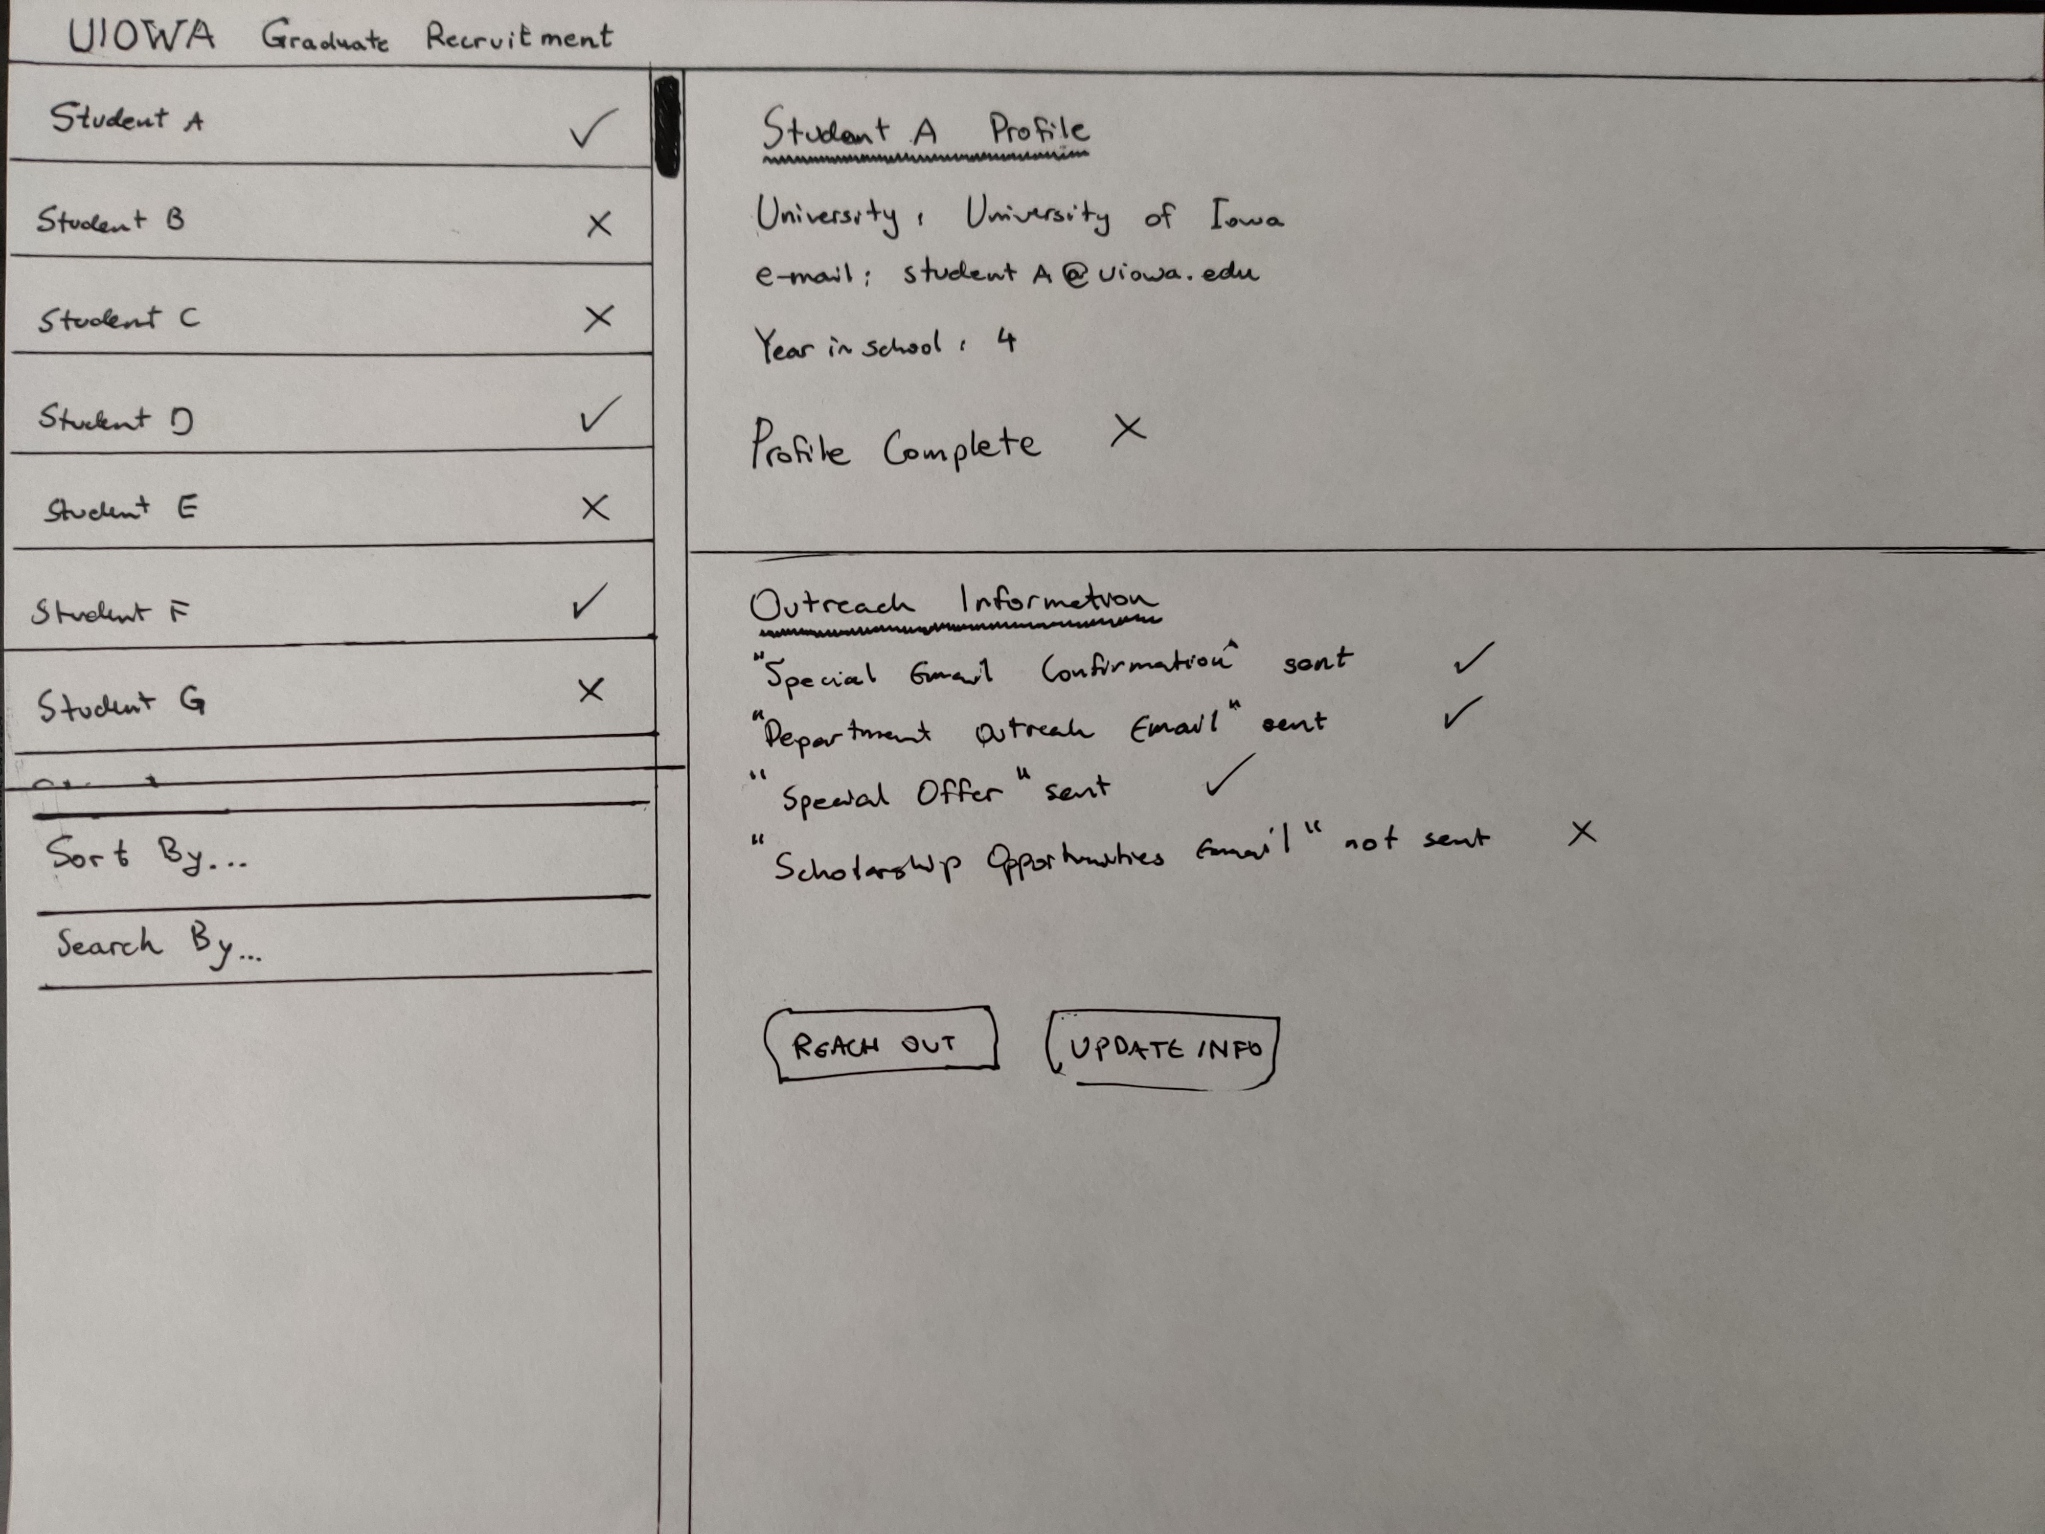 UIOWA Graduate Recruitment
Student A ✓
Student B X
Student C X
Student D ✓
Student E X
Student F ✓
Student G X
Sort By...
Search By...
Student A Profile
University: University of Iowa
e-mail: student A@uiowa.edu
Year in school: 4
Profile Complete X
Outreach Information
"Special Email Confirmation" sent ✓
"Department Outreach Email" sent ✓
"Special Offer" sent ✓
"Scholarship Opportunities Email" not sent X
REACH OUT
UPDATE INFO